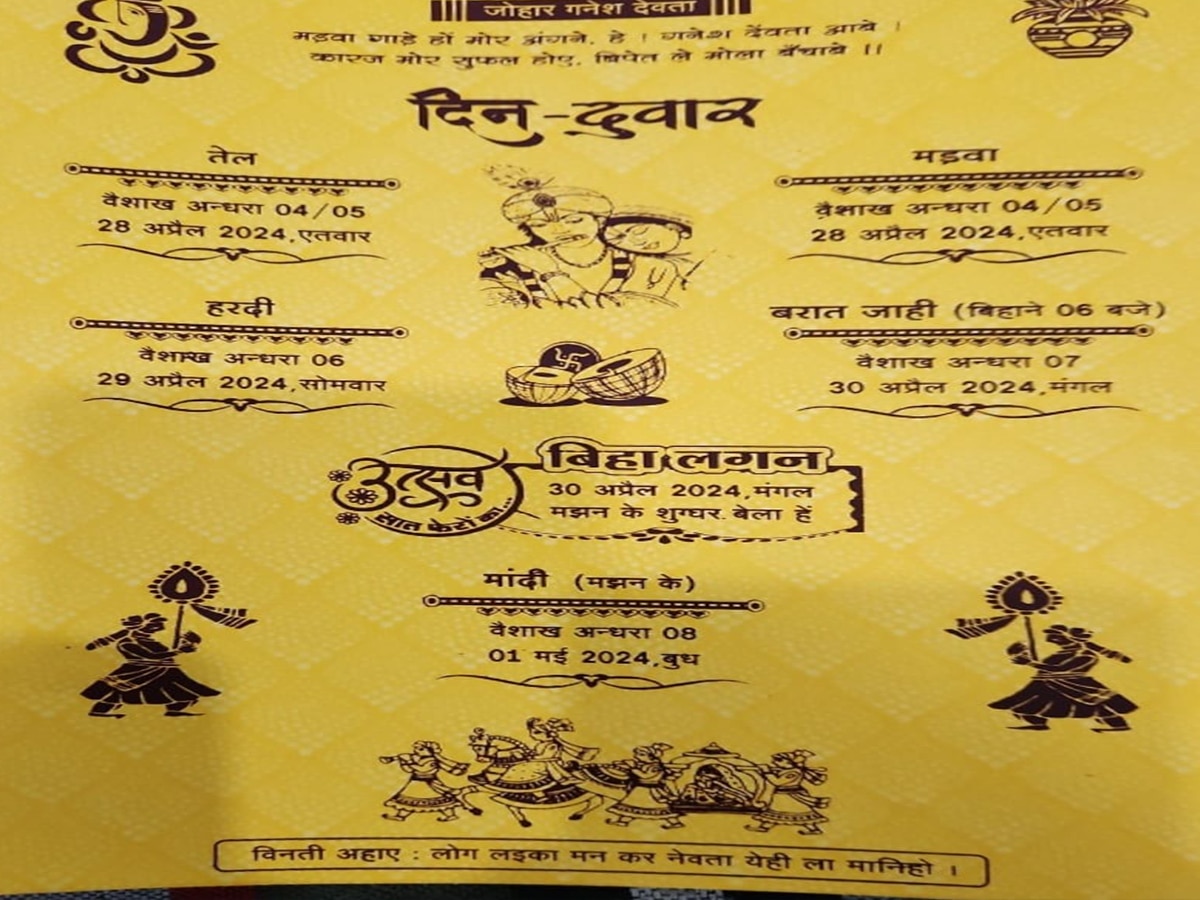 जोहार गनेश देवता
मड़वा गाड़े हों मोर अंगने, हे ! गनेश देंवता आबे !
कारज मोर सुफल होए, बिपेत ले मोला बँचाबे !!
दिन-दुवार
तेल
वैशाख अन्धरा 04/05
28 अप्रैल 2024,एतवार
मड़वा
वैशाख अन्धरा 04/05
28 अप्रैल 2024,एतवार
हरदी
वैशाख अन्धरा 06
29 अप्रैल 2024,सोमवार
बरात जाही (बिहाने 06 बजे)
वैशाख अन्धरा 07
30 अप्रैल 2024,मंगल
उत्सव
सात फेरों का...
बिहा लगन
30 अप्रैल 2024,मंगल
मझन के शुग्घर बेला हें
मांदी (मझन के)
वैशाख अन्धरा 08
01 मई 2024,बुध
विनती अहाए : लोग लइका मन कर नेवता येही ला मानिहो ।